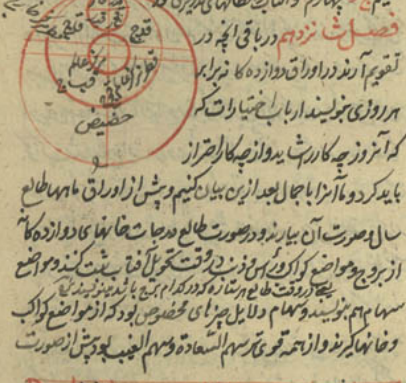 فصل شانزدهم در باقی آنچه در
تقویم آرند در اوراق دوازده کانه برابر
هر روزی بنویسند ارباب اختیارات که
که آنروز چه کار را شاید و از چه کار احتراز
باید کرد و ما آنرا باجمال بعد ازین بیان کنیم و پیش از اوراق ماهها طالع
سال و صورت آن بیارند و در صورت طالع درجات خانهای دوازده کانه
از بروج و مواضع کواکب و راس و ذنب در وقت تحویل آفتاب ثبت کنند و مواضع
یعنی در وقت طالع هر ستاره که در کدام برج باشد بنویسند
سهام هم بنویسند و سهام دلایل چیزهای مخصوص بود که از مواضع کواکب
و خانها گیرند و از همه قوی تر سهم السعادة و سهم الغیب بود و پیش از صورت
مرکز عالم
حضیض